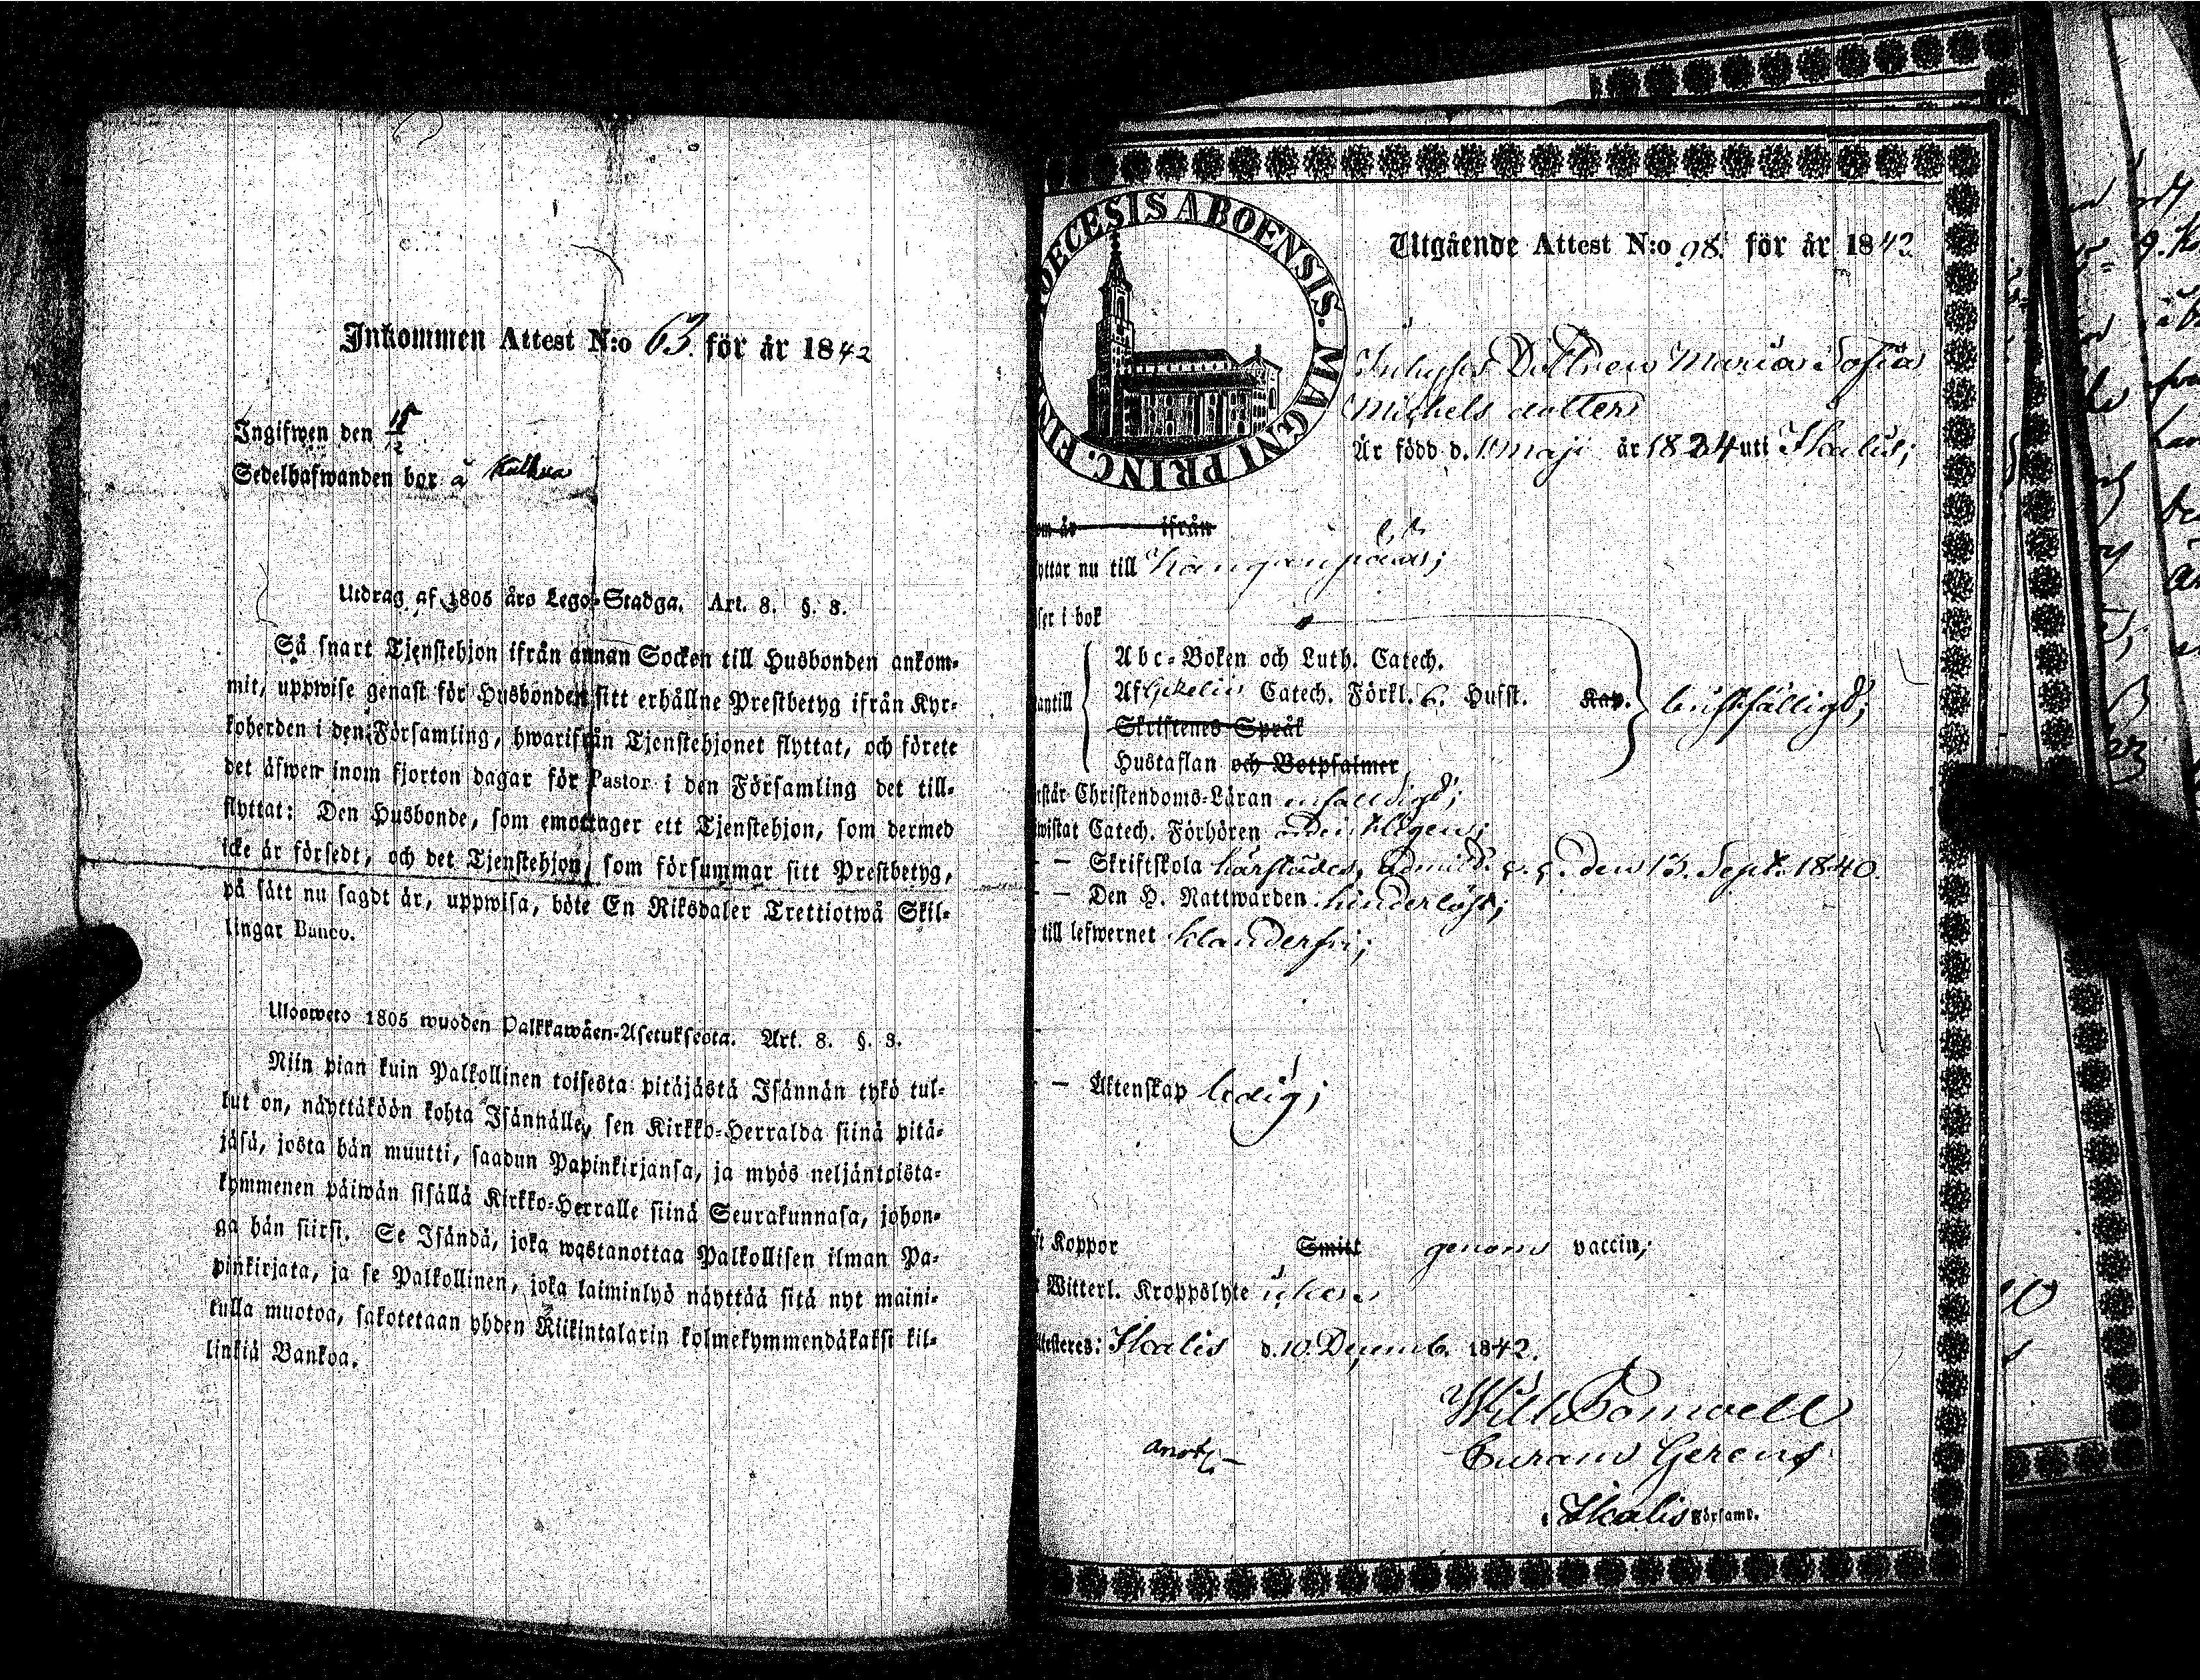 Inkommen Attest N:o 63. för år 1842
Ingifwen den 15/12
Sedelhafwanden bor å
Utdrag af 1805 års Lego-Stadga. Art. 8. §. 8.
Så snart Tjenstehjon ifrån annan Socken till Husbonden ankom-
mit, uppwise genast för Husbonden sitt erhållne Prestbetyg ifrån Kyr-
koherden i den Församling, hwarifrån Tjenstehjonet flyttat, och förete
det äfwen inom fjorton dagar för Pastor i den Församling det till-
flyttat: Den Husbonde, som emottager ett Tjenstehjon, som dermed
icke är försedt, och det Tjenstehjon, som försummar sitt Prestbetyg,
på sätt nu sagdt är, uppwisa, böte En Riksdaler Trettiotwå Skil-
lingar Banco.
Ulosweto 1805 wuoden Palkkawäen-Asetuksesta. Art. 8. §. 8.
Niin pian kuin Palkollinen toisesta pitäjästä Isännän tykö tul-
lut on, näyttäköön kohta Isännälle, sen Kirkko-Herralda siinä pitä-
jäsä, josta hän muutti, saadun Papinkirjansa, ja myös neljäntoista-
kymmenen päiwän sisällä Kirkko-Herralle siinä Seurakunnasa, johon-
ga hän siirsi. Se Isändä, joka wastanottaa Palkollisen ilman Pa-
pinkirjata, ja se Palkollinen, joka laiminlyö näyttää sitä nyt maini-
tulla muotoa, sakotetaan yhden Riikintalarin kolmekymmendäkaksi kil-
linkiä Bankoa.
DECESIS ABOENSIS. MAGNI PRINC. FIN
Utgående Attest N:o 98. för år 1842
Inhyses Dottren Maria Sofia
Michels dotter
Är född d. 1 Maji år 1824 uti Ikalis;
ifrån
yttar nu till Kangarpää;
ser i bok
Abc-Boken och Luth. Catech.
antill Af Gezelii Catech. Förkl. 6. Hufst. Kap. bristfälligt;
Skriftenes Språk
Hustaflan och Botpsalmer
står Christendoms-Läran enfaldigt;
wistat Catech. Förhören ordentligen;
— Skriftskola härstädes, admitt. den 13. Sept. 1840.
— Den H. Nattwarden hinderlöst;
till lefwernet klanderfri;
— Äktenskap ledig;
ft Koppor Smitt genom vaccin;
Witterl. Kroppslyte utan
ttesteres: Ikalis d. 10 Decemb. 1842.
Curam Gerens
anot.
Ikalis Församl.